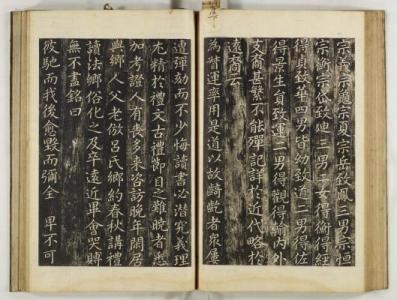 宗蘊宗夏宗岳致鳳三男宗恒
宗衡宗岱致迪三男三女得衡得經
得貞致華四男皆幼致道二男得佐
得景生員致運二男得觀得翰內外
支裔甚繁不能殫記詳於近代略於
遠裔云
為誓運率用是道以故齮齕者眾屢
遭彈劾而不少悔讀書必潛究義理
尤精於禮文古禮節目之難曉者悉
加考證人有喪多來咨訪晚年閒居
與鄉人父老倣呂氏鄉約春秋講禮
讀法鄉俗化之及卒遠近畢會哭賻
無不盡銘曰
馳而我後愈毀而彌全 卑不可